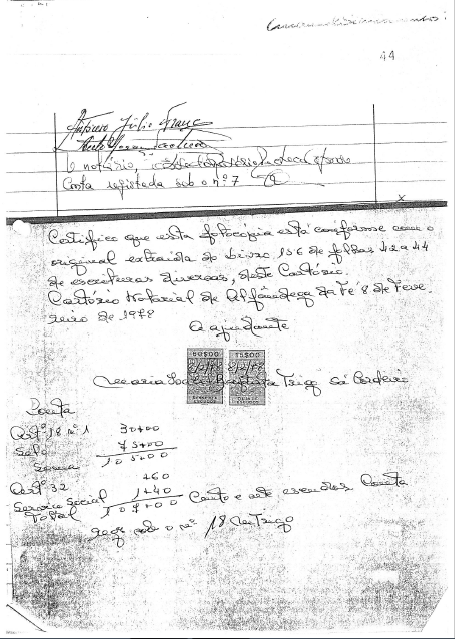 44
António Júlio Franç
O notário,
Conta registada sob o nº 7
x
Certifico que esta fotocópia está conforme com o
original extraida do livro 156 de folhas 42 a 44
de escrituras diversas, deste Cartório.
Cartório Notarial de Alfândega da Fé 8 de Feve-
reiro de 1978
A ajudante
60$00 15$00
Maria Trigo Sá Cordeiro
Conta
Artº 18 nº 1 30$00
Selo 75$00
Soma 105$00
Artº 32 $60
Serviço social 1$40
Total 107$00 Cento e sete escudos Conta
sob o nº 18 Trigo